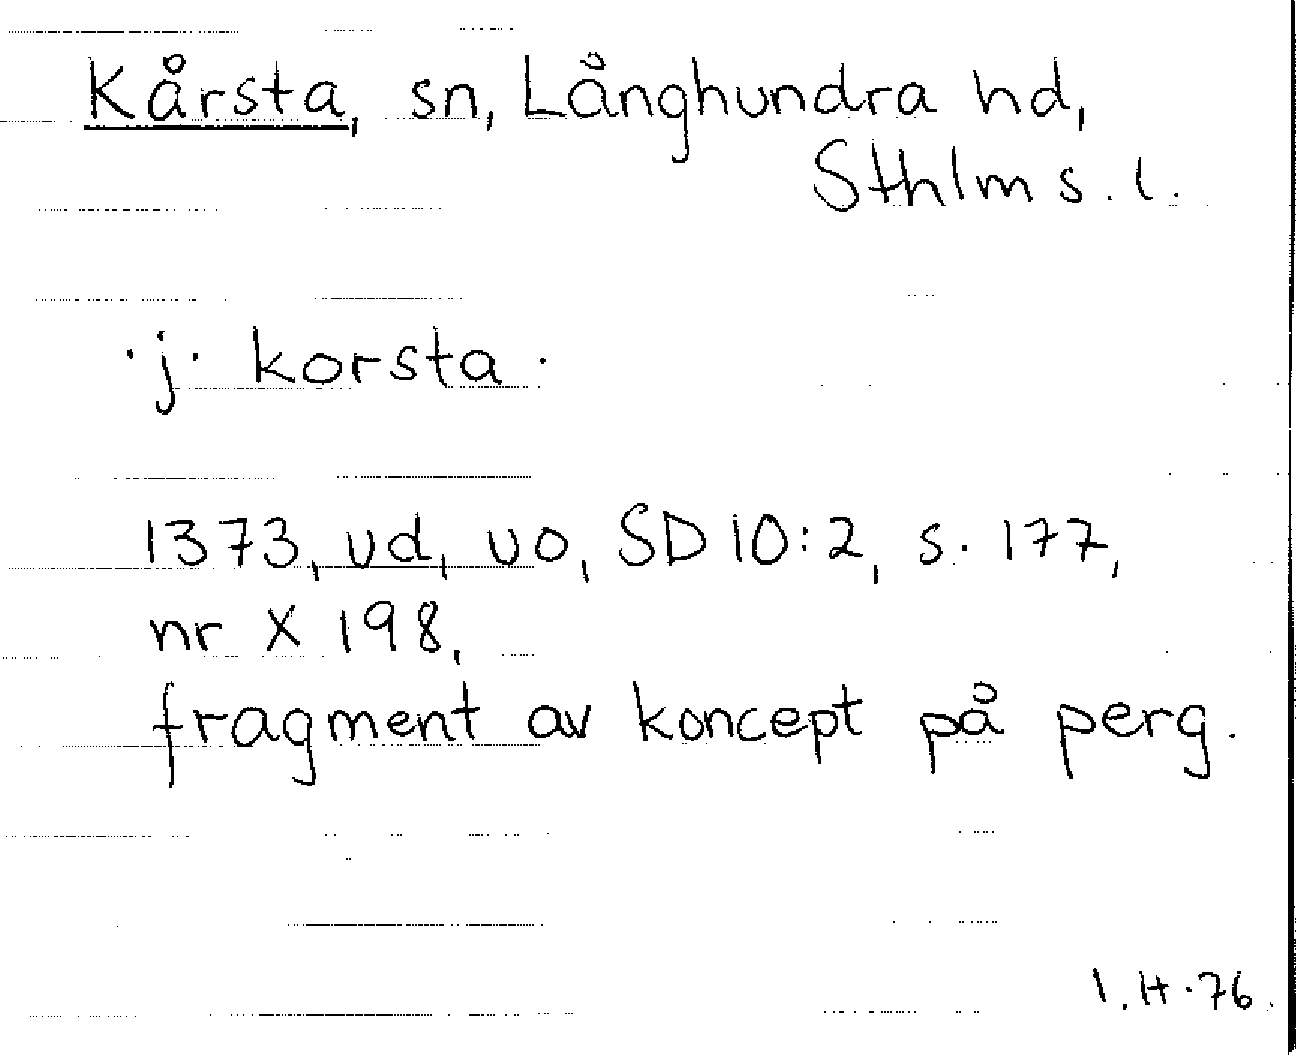 Kårsta, sn, Långhundra hd,
Sthlms. l.
·j· korsta ·
1373, ud, uo, SD 10:2, s. 177,
nr X 198,
fragment av koncept på perg.
I.H.76.